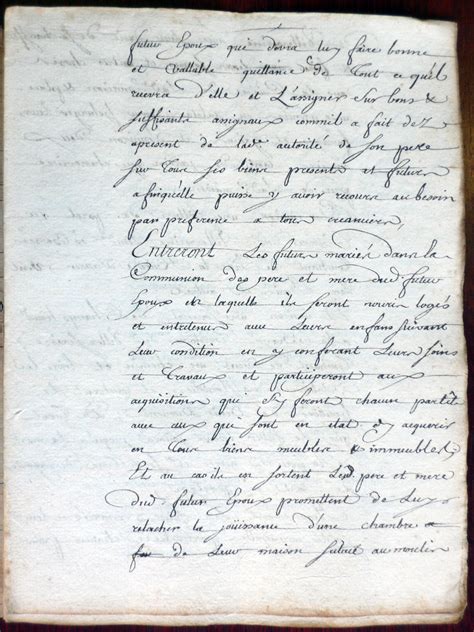 futur Epoux que devra luy faire bonne
et vallable quittance de Tout ce quel
recevra d'elle et L'assigner sur bons &
suffisants assignaux commil a fait dez
apresent de lad.e autorité de son pere
sur Tous ses biens presents et futurs
afinquelle puisse y avoir recours au besoin
par preference a tous creanciers,
Entreront Les futurs mariés dans la
Communion des pere et mere dud. futur
Epoux en laquelle ils seront nouris logés
et entretenus avec Leurs enfans suivant
Leur condition en y conferant Leurs soins
et Travaux et participeront aux
acquisitions qui s'y feront chacun
avec ceux qui sont en etat d'y acquerir
en Tous biens meubles & immeubles;
Et au cas ils en sortent Lesd. pere et mere
dud. futur Epoux promettent de Luy
relacher la jouissance d'une chambre a
feu de Leur maison